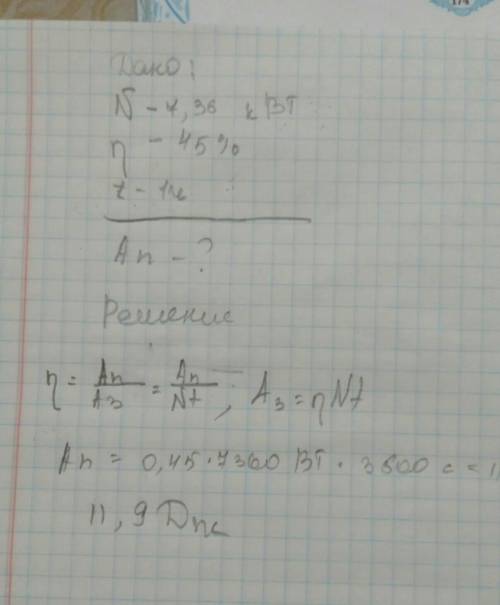 Дано:
N - 7,36 кВТ
η - 45%
t - 1ч
Aп - ?
Решение
η = Aп/Aз = Aп/Nt ; Aз = ηNt
Aп = 0,45·7360 ВТ · 3600 с =
11,9 Дж